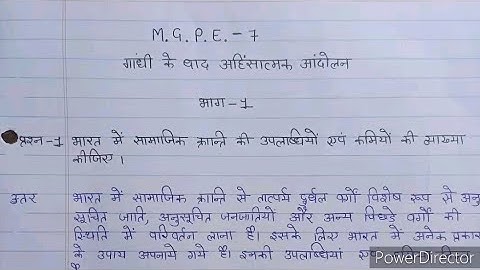 M. G. P. E. - 7
गांधी के बाद अहिंसात्मक आंदोलन
भाग - 1
प्रश्न-1 भारत में सामाजिक क्रान्ति की उपलब्धियों एवं कमियों की व्याख्या
कीजिए।
उत्तर भारत में सामाजिक क्रान्ति से तात्पर्य दुर्बल वर्गों विशेष रूप से अनु-
सूचित जाति, अनुसूचित जनजातियों और अन्य पिछड़े वर्गों की
स्थिति में परिवर्तन लाना है। इसके लिए भारत में अनेक प्रकार
के उपाय अपनाये गये हैं। इनकी उपलब्धियां एवं
PowerDirector